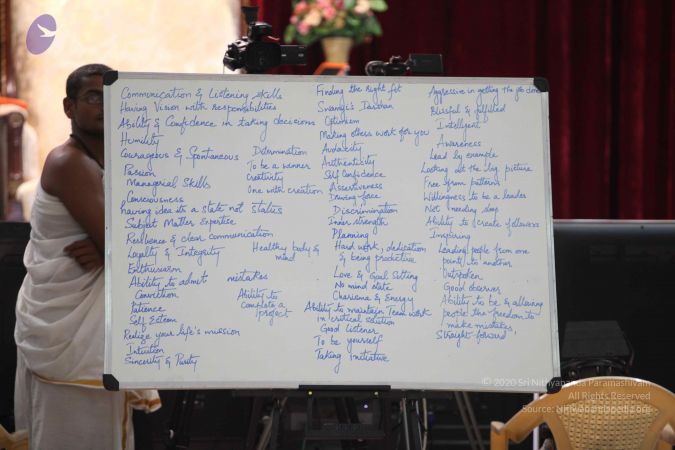 Communication & Listening skills
Having Vision with responsibilities
Ability & Confidence in taking decisions
Humility
Courageous & Spontaneous
Passion
Managerial Skills
Consciousness
having idea its a state not status
Subject Matter Expertise
Resilience & clear communication
Loyalty & Integrity
Enthusiasm
Ability to admit mistakes
Conviction
Patience
Self Esteem
Realize your life's mission
Intuition
Sincerity & Purity
Determination
To be a winner
Creativity
One with creation
Healthy body &
mind
Ability to
complete a
project
Finding the right fit
Swamiji's Darshan
Optimism
Making others work for you
Audacity
Authenticity
Self Confidence
Assertiveness
Driving force
Discrimination
Inner strength
Planning
Hard work, dedication
& being productive
Love & Goal Setting
No mind state
Charisma & Energy
Ability to maintain Team work
in critical solution
Good listener
To be yourself
Taking Initiative
Aggressive in getting the job done
Blissful & fulfilled
Intelligent
Awareness
Lead by example
Looking at the big picture
Free from patterns
Willingness to be a leader
Not needing sleep
Ability to create followers
Inspiring
Leading people from one
point to another
Outspoken
Good observer
Ability to be & allowing
people the freedom to
make mistakes,
Straight forward
© 2020 Sri Nithyananda Paramashivam
All Rights Reserved
Source: Nithyanandapedia.org